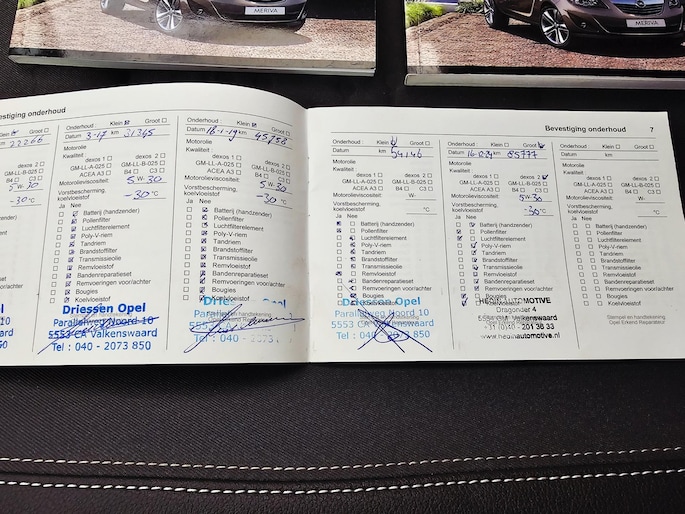 MERIVA
MERIVA
Bevestiging onderhoud
Klein Groot
km 22266
dexos 2
GM-LL-B-025
C3
5 W-30
-30 °C
Onderhoud Klein Groot
Datum 3-17 km 31345
Motorolie
Kwaliteit:
dexos 1 dexos 2
GM-LL-A-025 GM-LL-B-025
ACEA A3 B4 C3
Motorolieviscositeit: 5 W-30
Vorstbescherming,
koelvloeistof -30 °C
Ja Nee
Batterij (handzender)
Pollenfilter
Luchtfilterelement
Poly-V-riem
Tandriem
Brandstoffilter
Transmissieolie
Remvloeistof
Bandenreparatieset
Remvoeringen voor/achter
Bougies
Koelvloeistof
Driessen Opel
Parallelweg Noord 10
5553 CA Valkenswaard
Tel : 040 - 2073 850
Onderhoud Klein Groot
Datum 18-1-19 km 45758
Motorolie
Kwaliteit:
dexos 1 dexos 2
GM-LL-A-025 GM-LL-B-025
ACEA A3 B4 C3
Motorolieviscositeit: 5 W-30
Vorstbescherming,
koelvloeistof -30 °C
Ja Nee
Batterij (handzender)
Pollenfilter
Luchtfilterelement
Poly-V-riem
Tandriem
Brandstoffilter
Transmissieolie
Remvloeistof
Bandenreparatieset
Remvoeringen voor/achter
Bougies
Koelvloeistof
Opel
5553 CA Valkenswaard
Tel : 040 -
Bevestiging onderhoud 7
Onderhoud Klein Groot
Datum km 54146
Motorolie
Kwaliteit:
dexos 1 dexos 2
GM-LL-A-025 GM-LL-B-025
ACEA A3 B4 C3
Motorolieviscositeit: W-
Vorstbescherming,
koelvloeistof °C
Ja Nee
Batterij (handzender)
Pollenfilter
Luchtfilterelement
Poly-V-riem
Tandriem
Brandstoffilter
Transmissieolie
Remvloeistof
Bandenreparatieset
Remvoeringen voor/achter
Bougies
Koelvloeistof
Driessen Opel
Parallelweg Noord 10
5553 CA Valkenswaard
Tel : 040 - 2073 850
Onderhoud Klein Groot
Datum km 85777
Motorolie
Kwaliteit:
dexos 1 dexos 2
GM-LL-A-025 GM-LL-B-025
ACEA A3 B4 C3
Motorolieviscositeit: 5 W-30
Vorstbescherming,
koelvloeistof -30 °C
Ja Nee
Batterij (handzender)
Pollenfilter
Luchtfilterelement
Poly-V-riem
Tandriem
Brandstoffilter
Transmissieolie
Remvloeistof
Bandenreparatieset
Remvoeringen voor/achter
Bougies
Koelvloeistof
HEDIN AUTOMOTIVE
Dragonder 4
5555 Valkenswaard
201 38 33
www.hedinautomotive.nl
Onderhoud Klein Groot
Datum km
Motorolie
Kwaliteit:
dexos 1 dexos 2
GM-LL-A-025 GM-LL-B-025
ACEA A3 B4 C3
Motorolieviscositeit: W-
Vorstbescherming,
koelvloeistof °C
Ja Nee
Batterij (handzender)
Pollenfilter
Luchtfilterelement
Poly-V-riem
Tandriem
Brandstoffilter
Transmissieolie
Remvloeistof
Bandenreparatieset
Remvoeringen voor/achter
Bougies
Koelvloeistof
Stempel en handtekening
Opel Erkend Reparateur